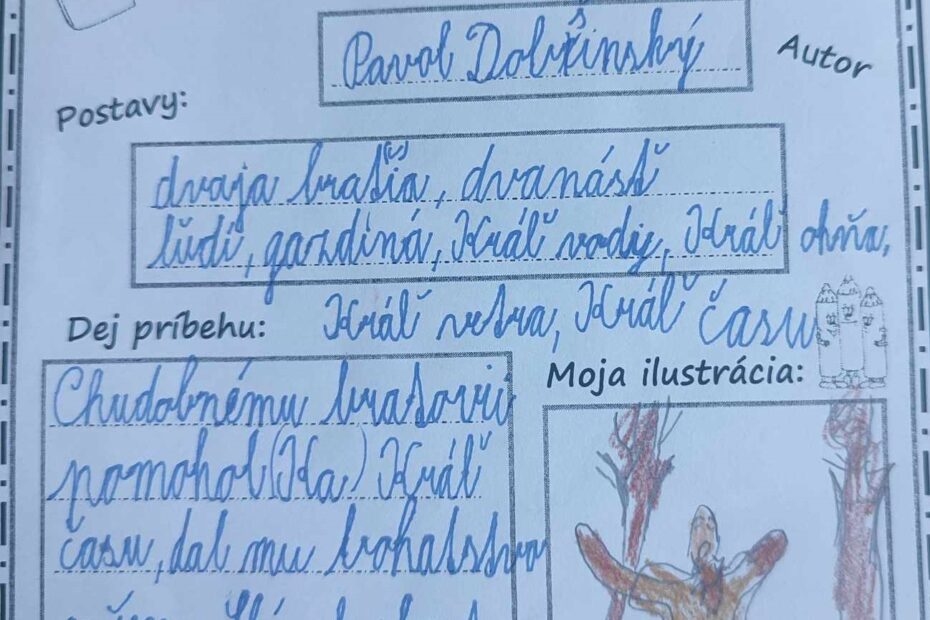 Pavol Dobšinský
Autor
Postavy:
dvaja bratia, dvanásť
ľudí, gazdiná, Kráľ vody, Kráľ ohňa,
Kráľ vetra, Kráľ času
Dej príbehu:
Moja ilustrácia:
Chudobnému bratovi
pomohol (Ka) Kráľ
času, dal mu bohatstvo